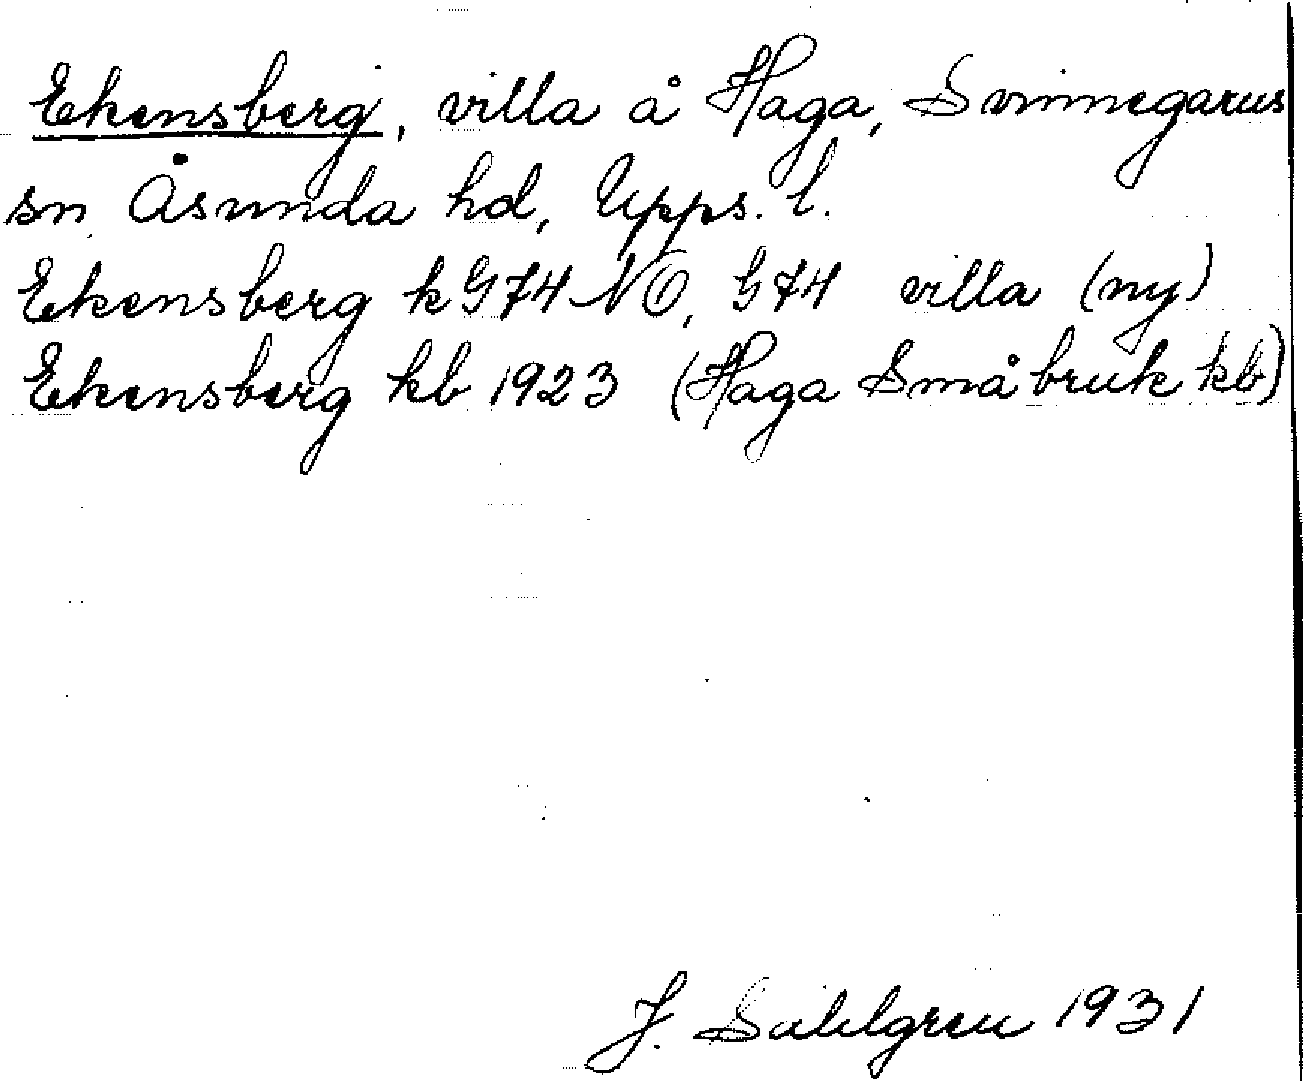 Ekensberg, villa å Haga, Svinnegarns
sn Åsunda hd, Upps. l.
Ekensberg k G74 NO, G74 villa (ny)
Ekensberg kb 1923 (Haga Småbruk kb)
J. Sahlgren 1931